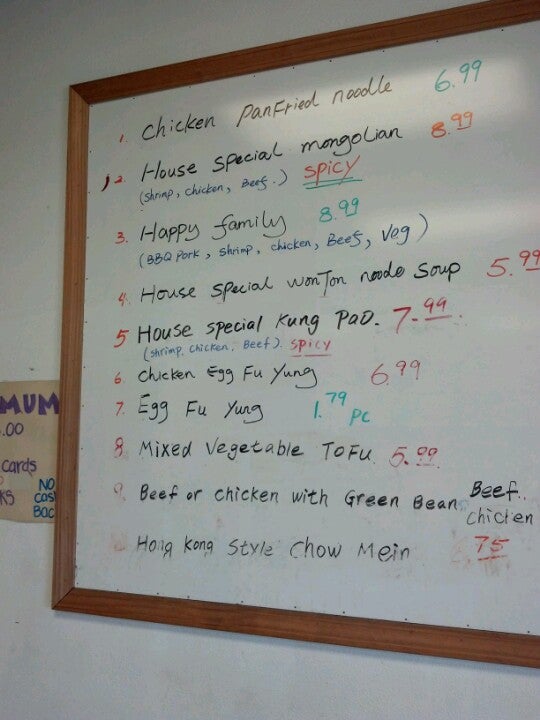 1. Chicken PanFried noodle 6.99
2. House special mongolian 8.99
(shrimp, chicken, Beef.) spicy
3. Happy family 8.99
(BBQ Pork, shrimp, chicken, Beef, Veg)
4. House special wonTon noodo soup 5.99
5 House special Kung Pao. 7.99
(shrimp, chicken, Beef). spicy
6. chicken Egg Fu Yung 6.99
7. Egg Fu Yung 1.79 PC
8. Mixed Vegetable ToFu 5.99
9. Beef or chicken with Green Bean Beef..
chicken
Hong Kong Style Chow Mein 7.5
MUM
.00
cards
KS
NO
Cas
Bac